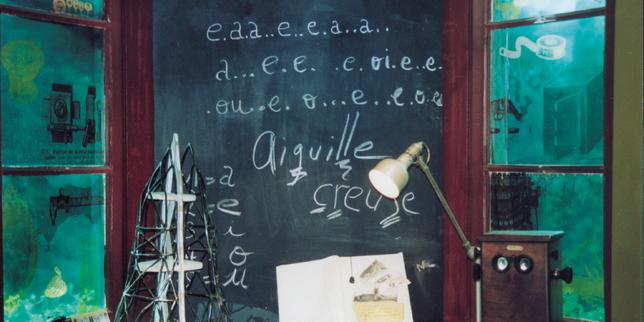 e.a.a..e..e.a..a..
a...e.e. .e.oi.e..e.
.ou..e.o...e..e.o..e
Aiguille
creuse
=a
=e
i
o
u